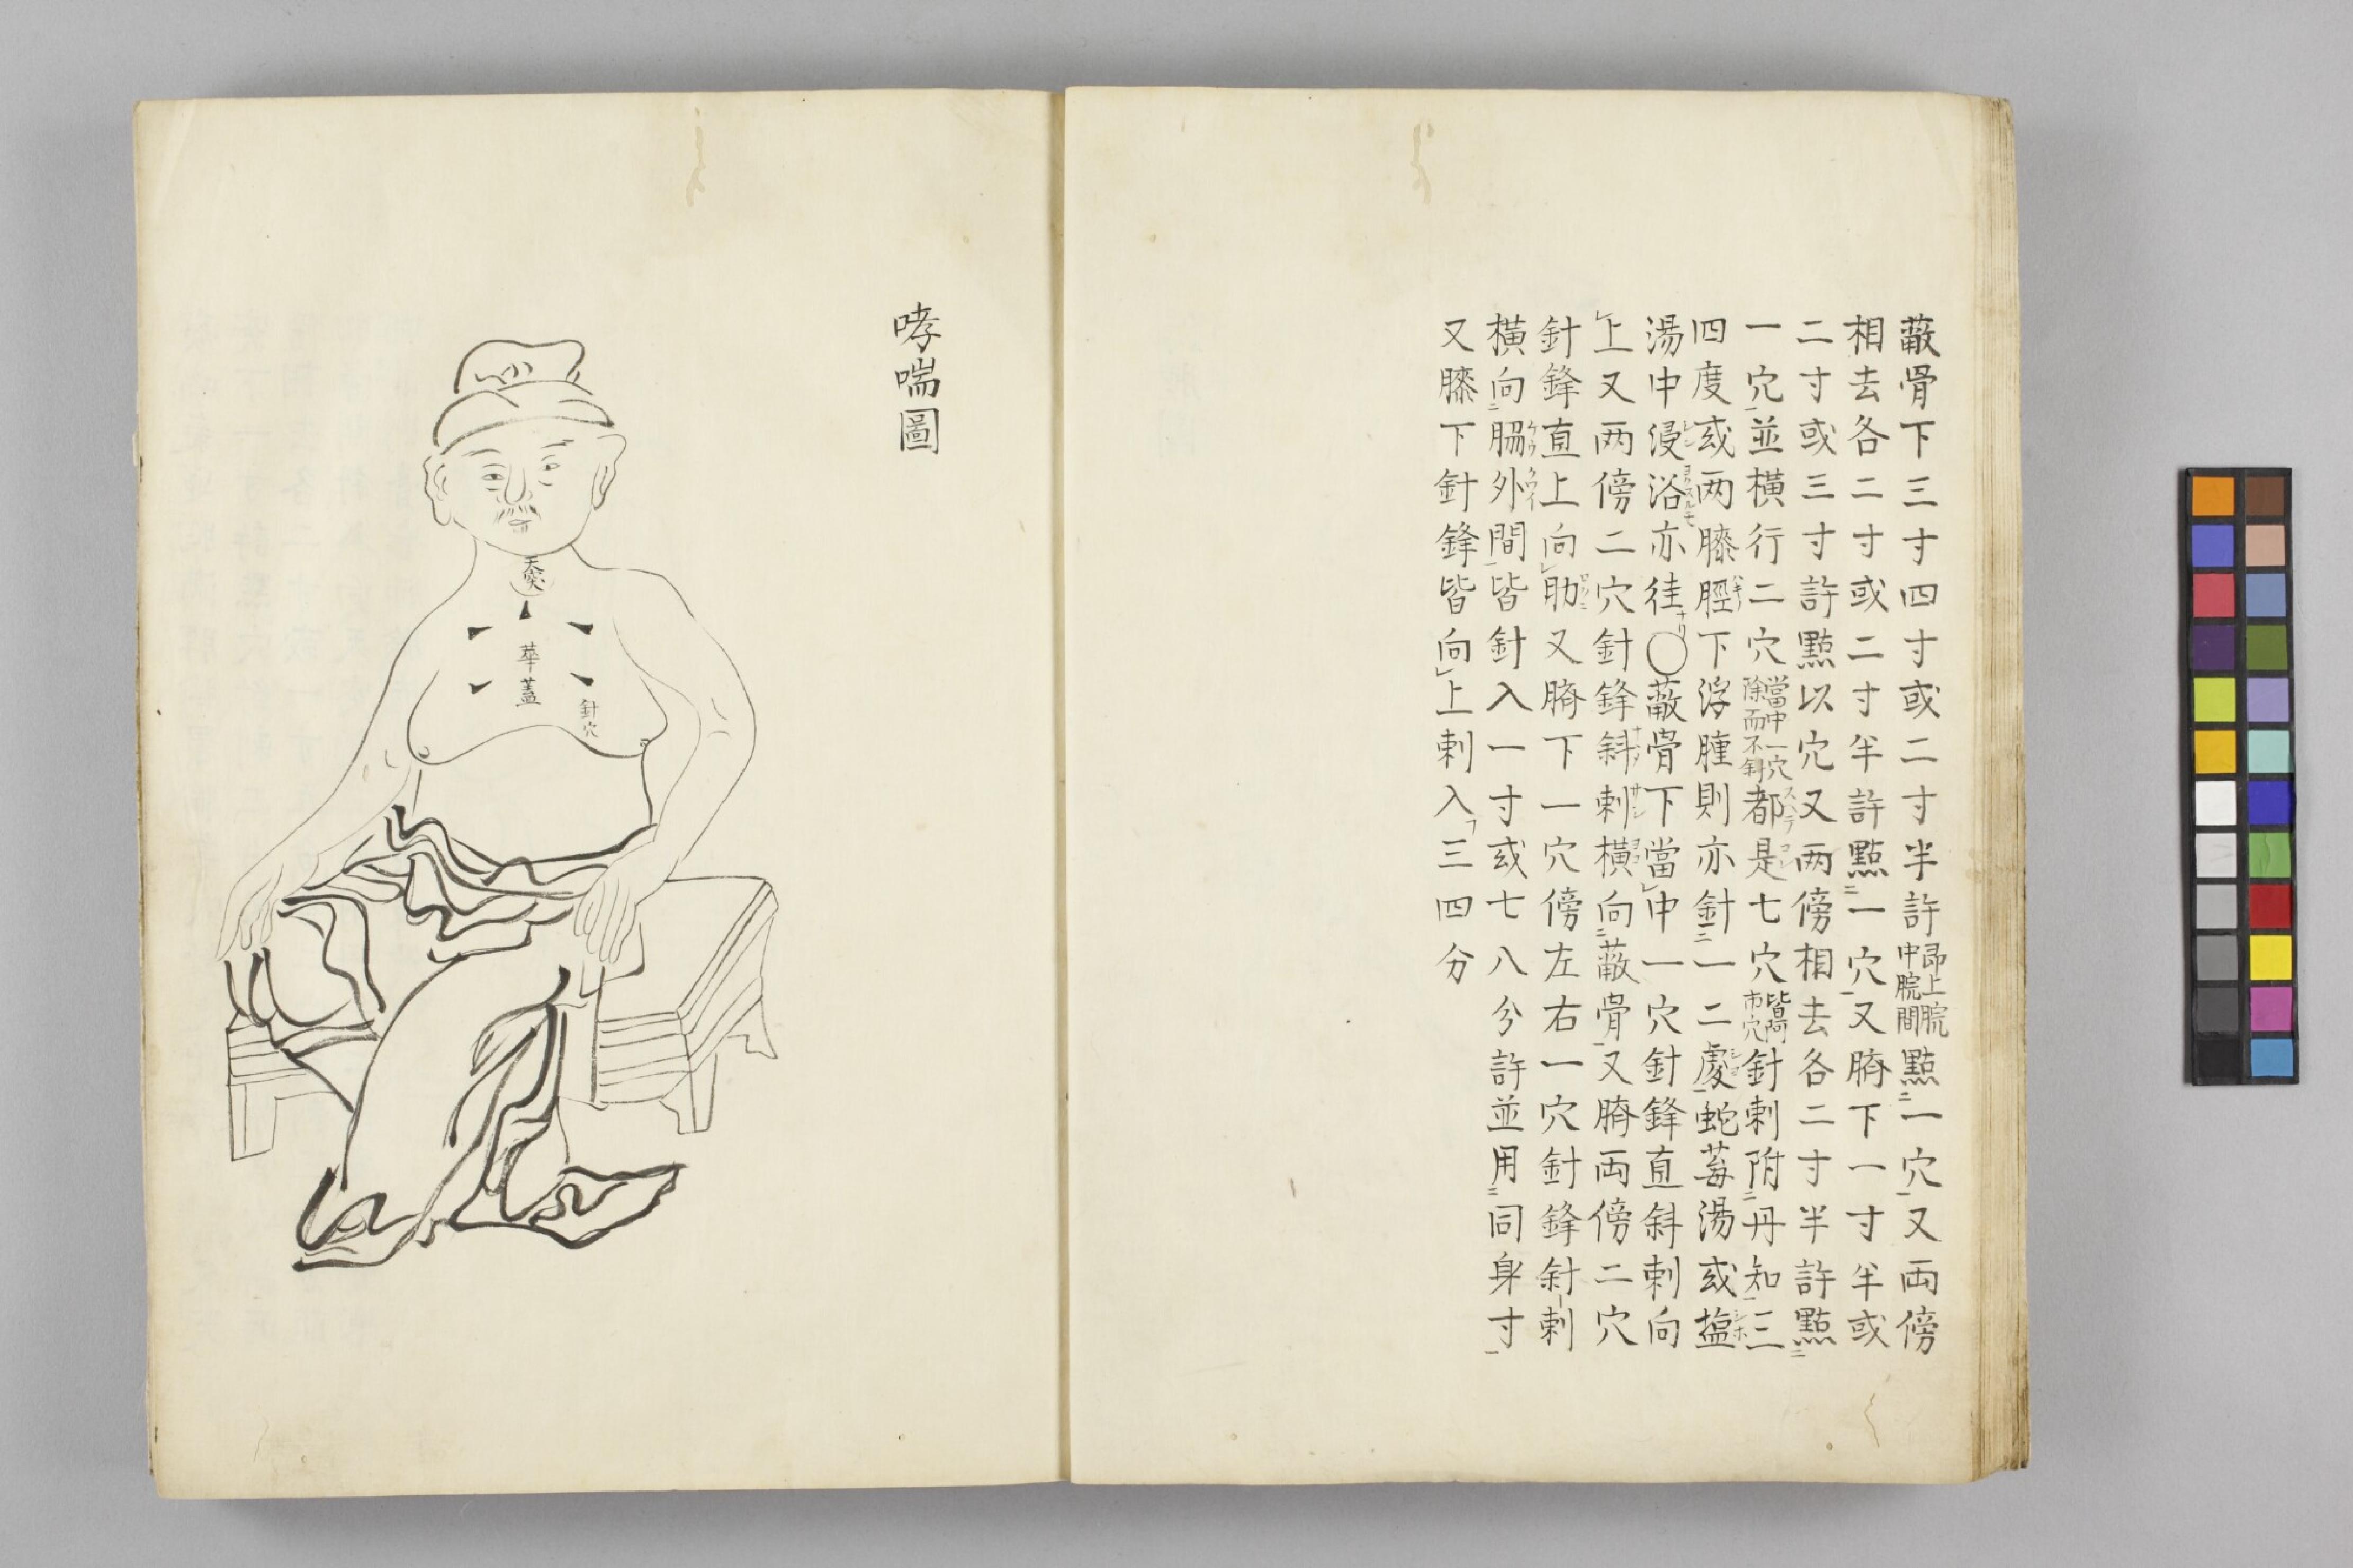 蔽骨下三寸四寸或二寸半許即上脘中脘間點二一穴一又両傍
相去各二寸或二寸半許點二一穴一又臍下一寸半或
二寸或三寸許點以穴又两傍相去各二寸半許點二
一穴一並横行二穴當中一穴除而不針都スヘテ是コレ七穴皆阿市穴針刺附二丹知一三
四度或两膝脛ハキ下浮腫則亦針二一二處一蛇莓湯或塩シホ
湯中浸シン浴ヨクスルモ亦徍ナリ〇蔽骨下當レ中一穴針鋒直斜刺向
レ上又两傍二穴針鋒斜刺横向二蔽骨一又臍両傍二穴
針鋒直上向レ肋又臍下一穴傍左右一穴針鋒斜刺
横向二脇外間一皆針入一寸或七八分許並用二同身寸一
又膝下針鋒皆向レ上刺入フ三四分
哮喘圖
天突
華蓋
針穴